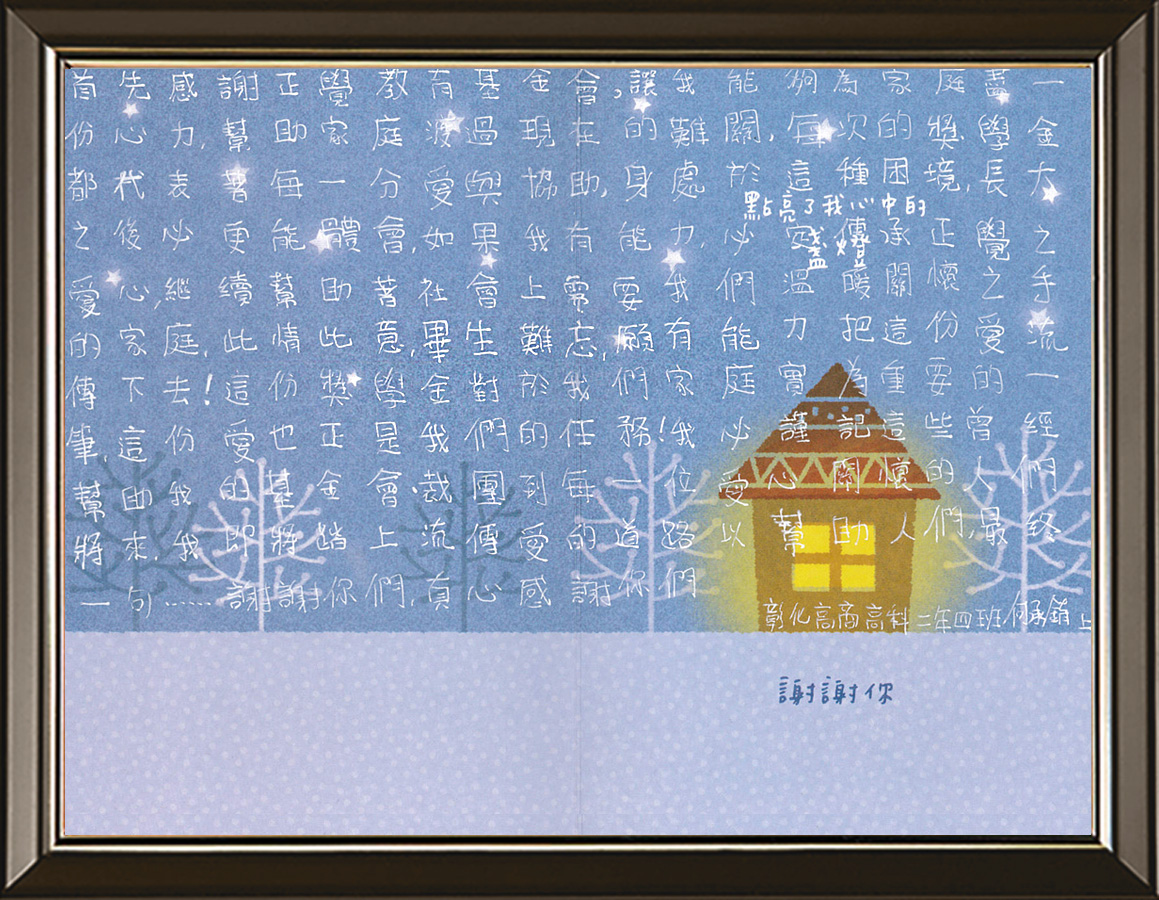 首先感謝正覺教有基金會,讓我能夠為家庭盡一
份心力,幫助家庭渡過現在的難關,每次的獎學金
都代表著每一分愛與協助,身處於這種困境,長大
之後必更能體會,如果我有能力,必定傳承正覺之
愛心,繼續幫助著社會上需要我們溫暖關懷之手
的家庭,此情此意,畢生難忘,願有能力把這份愛流
傳下去!這份獎學金對於我們家庭實為重要的一
筆,這份愛也正是我們的任務!我必謹記這些曾經
幫助我的基金會.裁團到每一位受心關懷的人們
將來,我即將踏上流傳愛的道路以幫助人們,最終
一句......謝謝你們,真心感謝你們
點亮了我心中的
盞燈
彰化高商高科二年四班何承 上
謝謝你